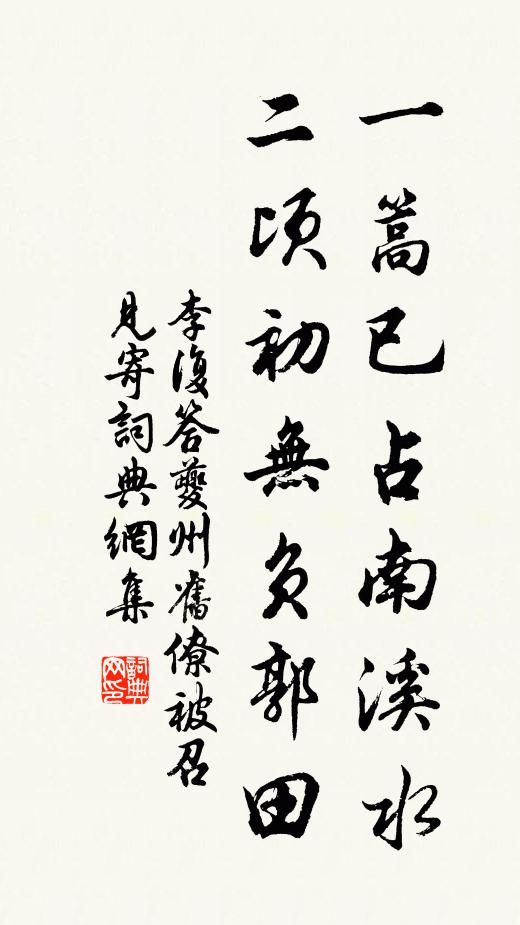 一篙已占南溪水
二頃初無負郭田
李復答夔州舊僚被召
見寄詞典網集
詞典网印